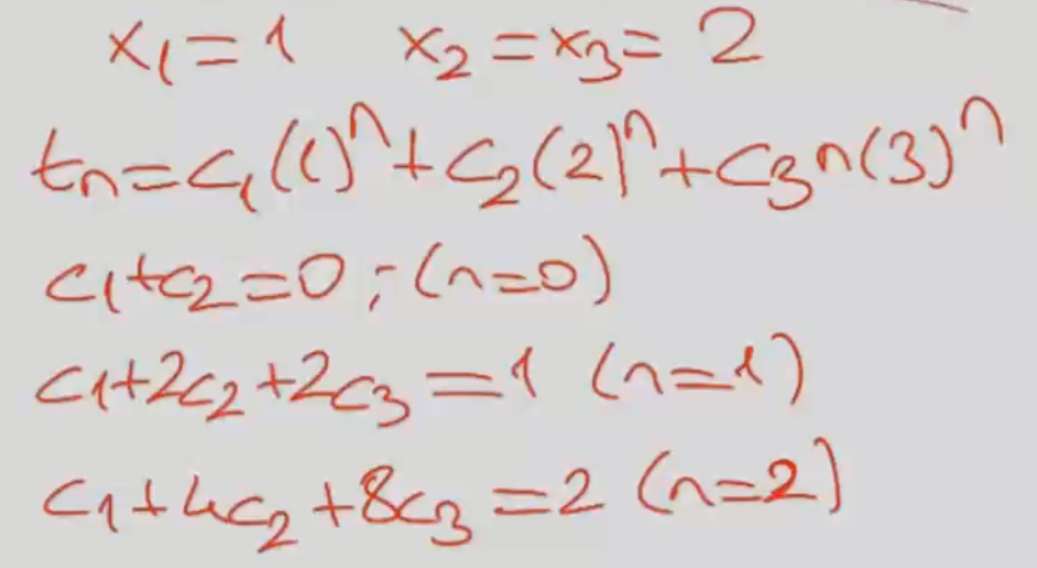 x₁ = 1 x₂ = x₃ = 2
tₙ = c₁(1)ⁿ + c₂(2)ⁿ + c₃n(3)ⁿ
c₁ + c₂ = 0 ; (n=0)
c₁ + 2c₂ + 2c₃ = 1 (n=1)
c₁ + 4c₂ + 8c₃ = 2 (n=2)